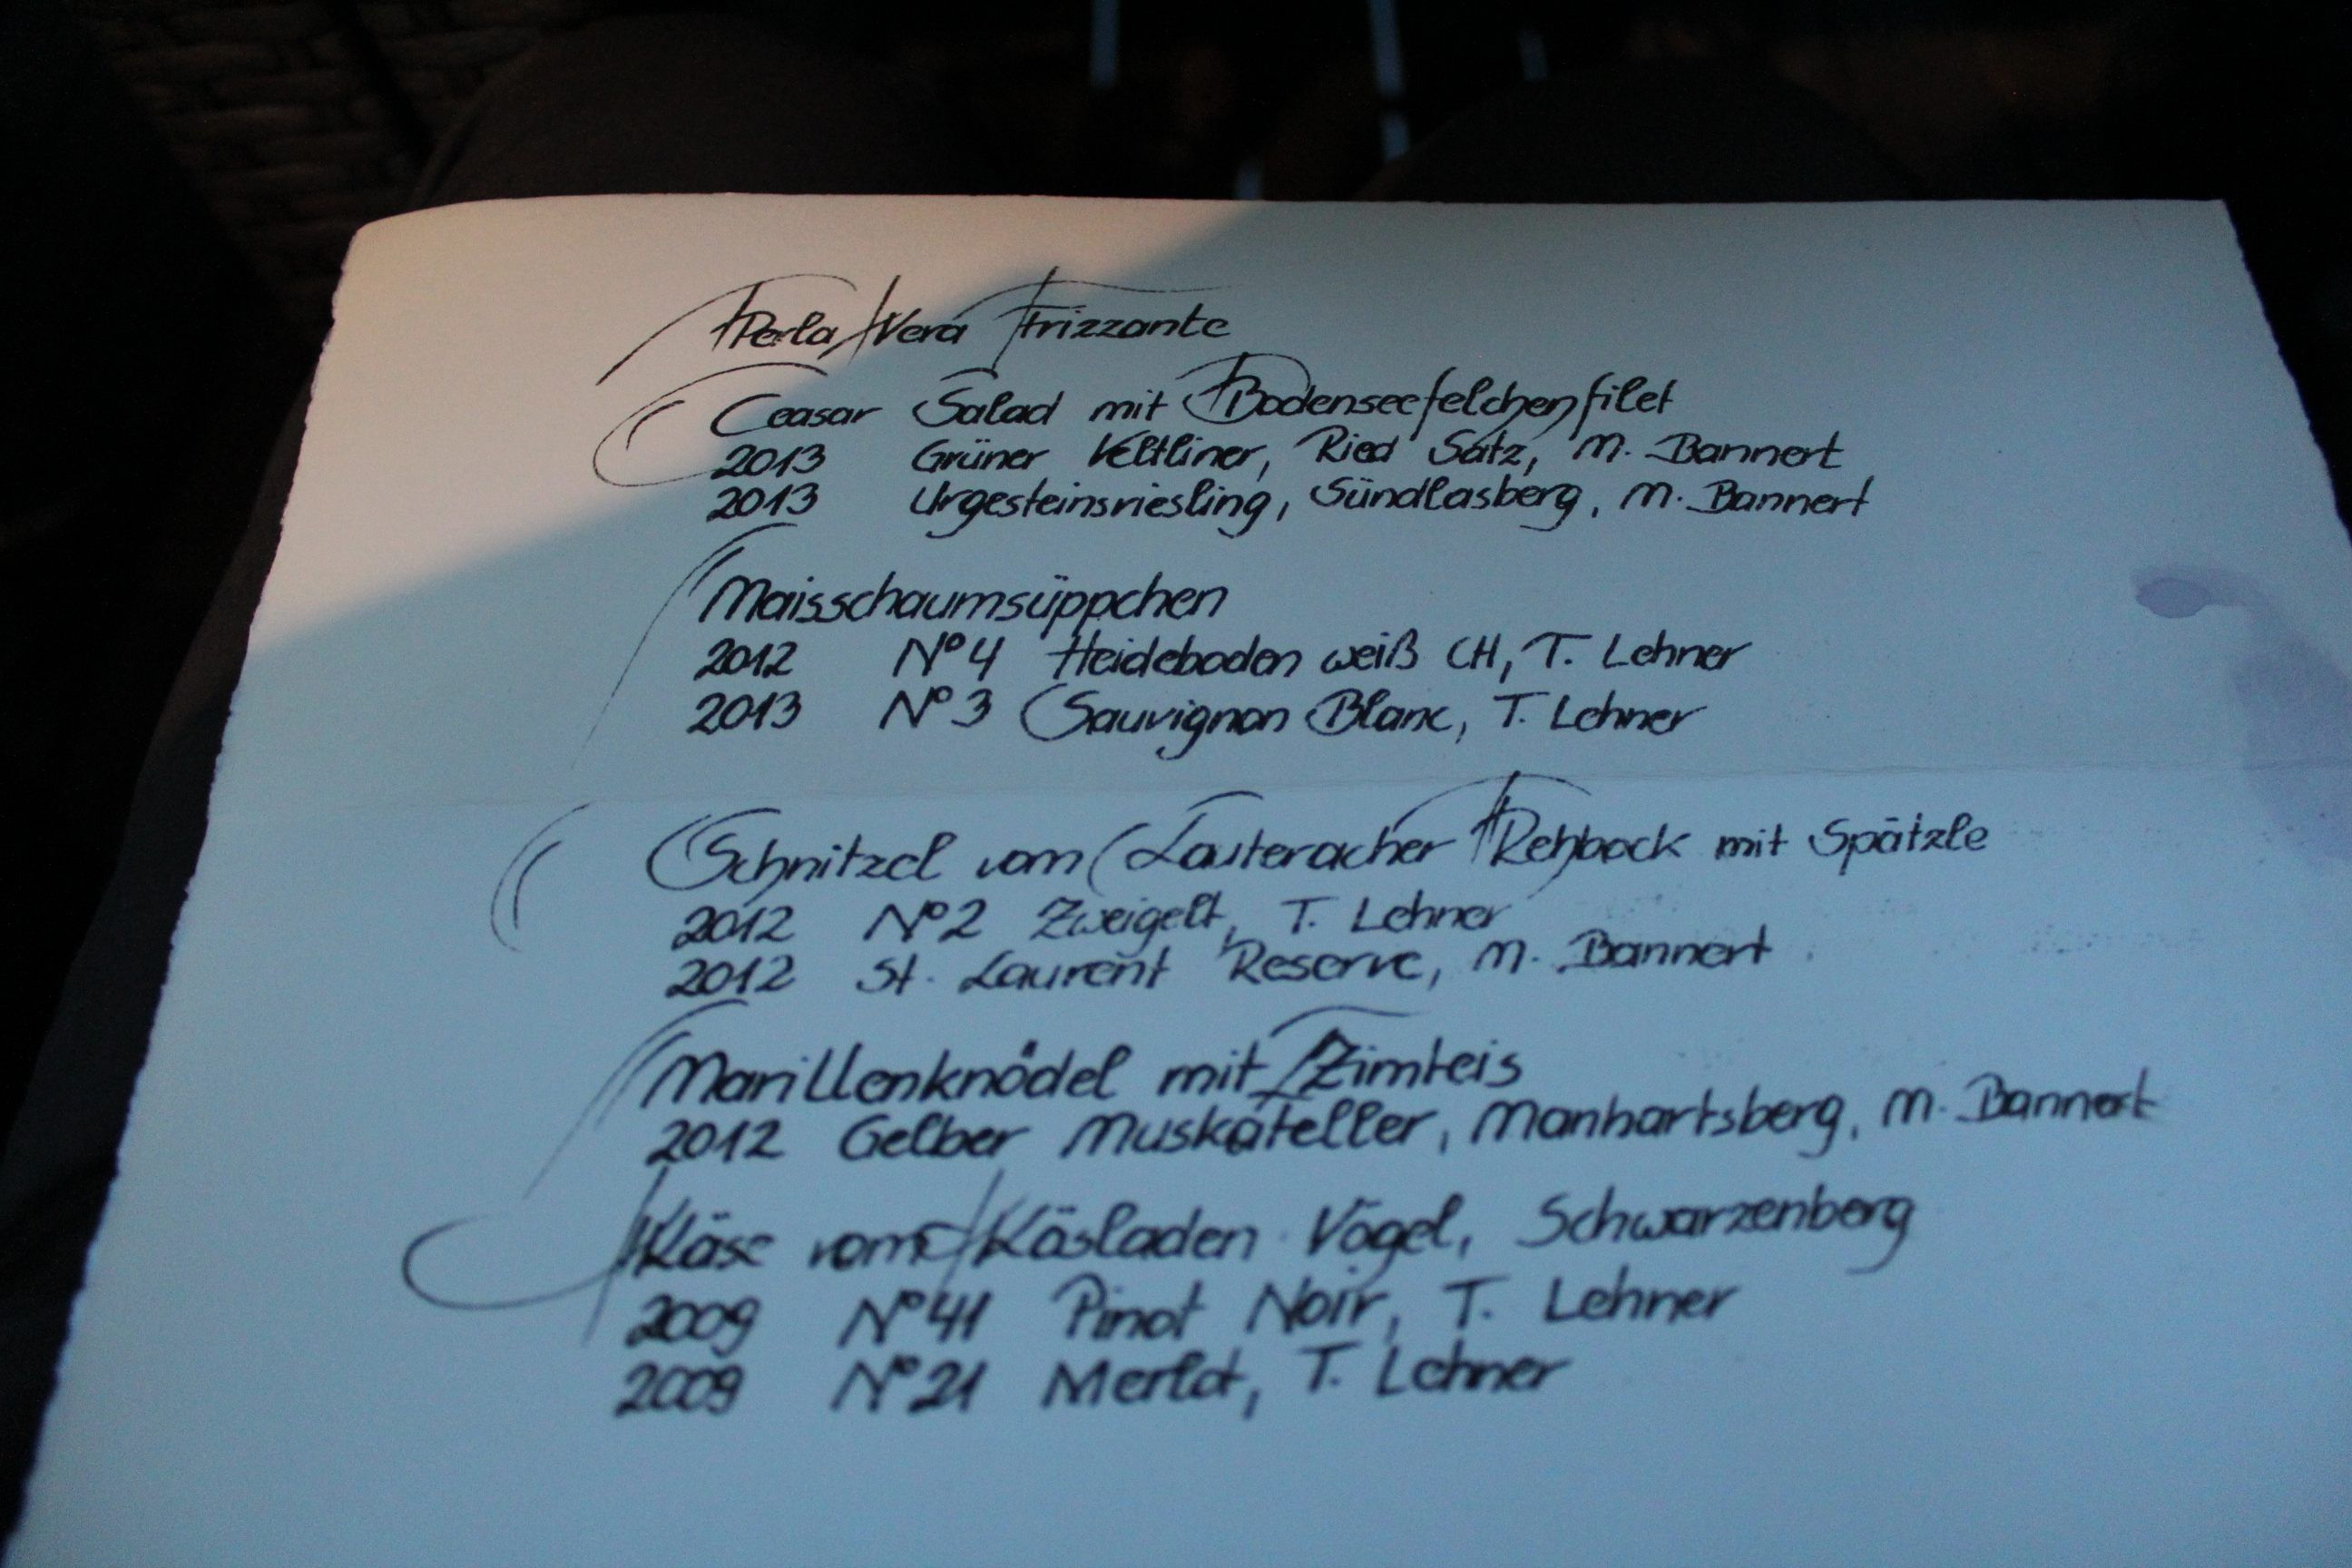 Perla Vera Frizzante
Ceasar Salad mit Bodenseefelchenfilet
2013 Grüner Veltliner, Ried Satz, M. Bannert
2013 Urgesteinsriesling, Sündlasberg, M. Bannert
Maisschaumsüppchen
2012 Nº4 Heideboden weiß CH, T. Lehner
2013 Nº3 Sauvignon Blanc, T. Lehner
Schnitzel vom Lauteracher Rehbock mit Spätzle
2012 Nº2 Zweigelt, T. Lehner
2012 St. Laurent Reserve, M. Bannert
Marillenknödel mit Zimteis
2012 Gelber Muskateller, Manhartsberg, M. Bannert
Käse vom Käsladen Vögel, Schwarzenberg
2009 Nº41 Pinot Noir, T. Lehner
2009 Nº21 Merlot, T. Lehner